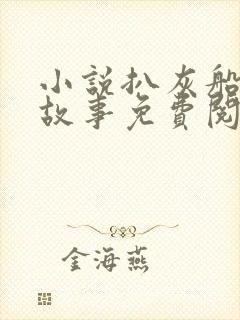 小説扒灰船
故事免費閱
金海燕